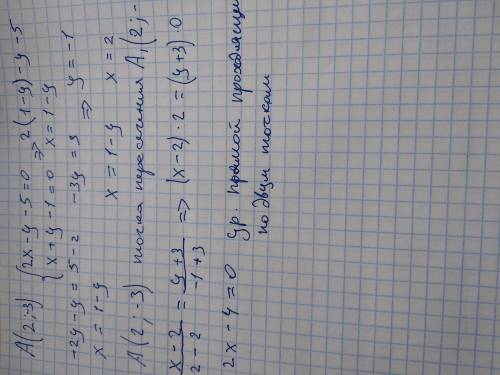 A(2;-3) { 2x-y-5=0 => 2(1-y)-y-5
x+y-1=0 x=1-y
-2y-y=5-2 -3y=3 => y=-1
x=1-y x=1-y x=2
A(2;-3) точка пересечения A₁(2;-
x-2/2-2 = y+3/-1+3 => (x-2)·2=(y+3)·0
2x-4=0 ур. прямой проходящи
по двум точкам